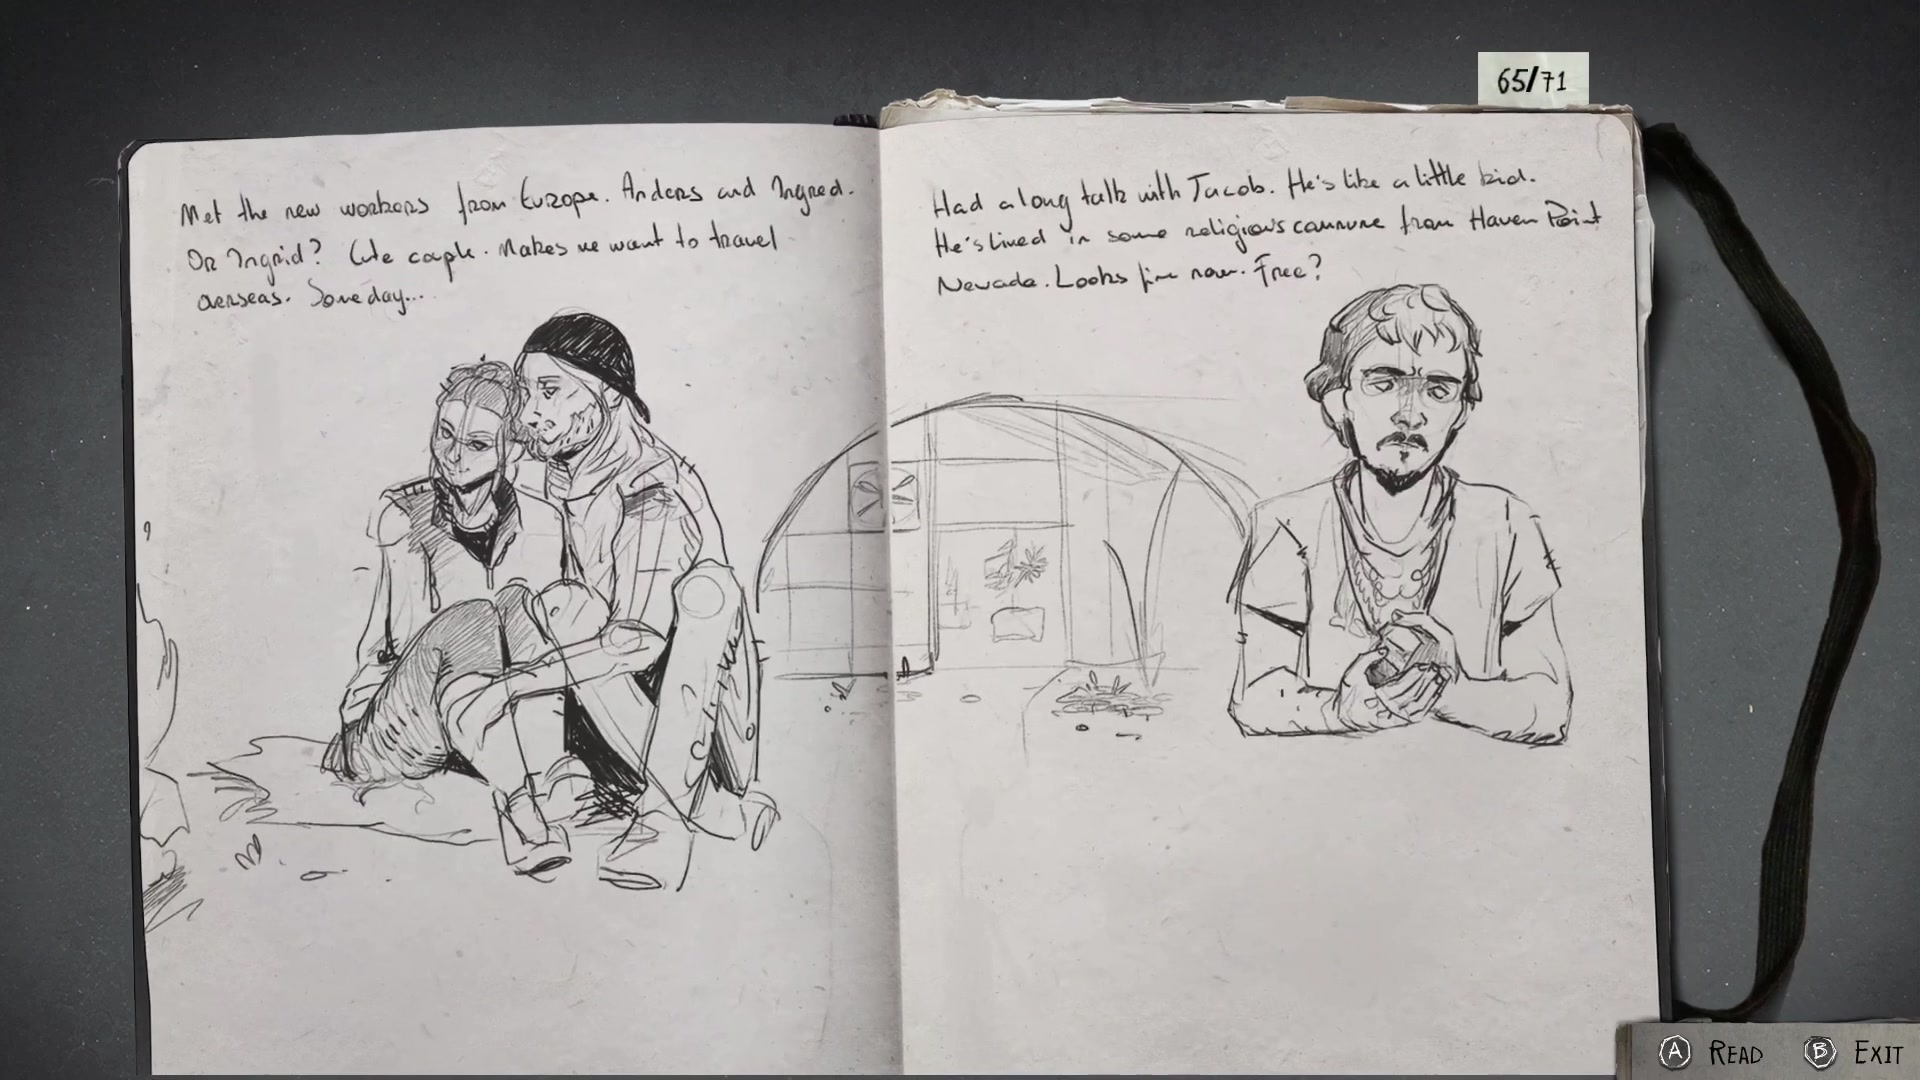 65/71
Met the new workers from Europe. Anders and Ingred.
Or Ingrid? Cute couple. Makes me want to travel
overseas. Someday...
Had a long talk with Jacob. He's like a little kid.
He's lived in some religious commune from Haven Point
Nevada. Looks fine now. Free?
A READ B EXIT